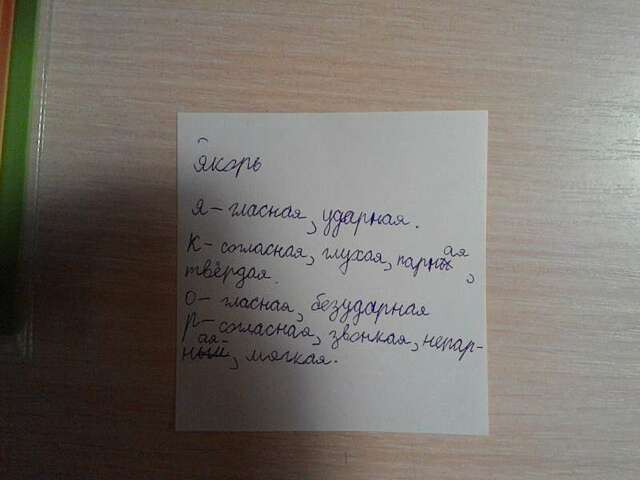 Якорь
Я – гласная, ударная.
К – согласная, глухая, парная,
твёрдая.
О – гласная, безударная
Р – согласная, звонкая, непар-
ная, мягкая.